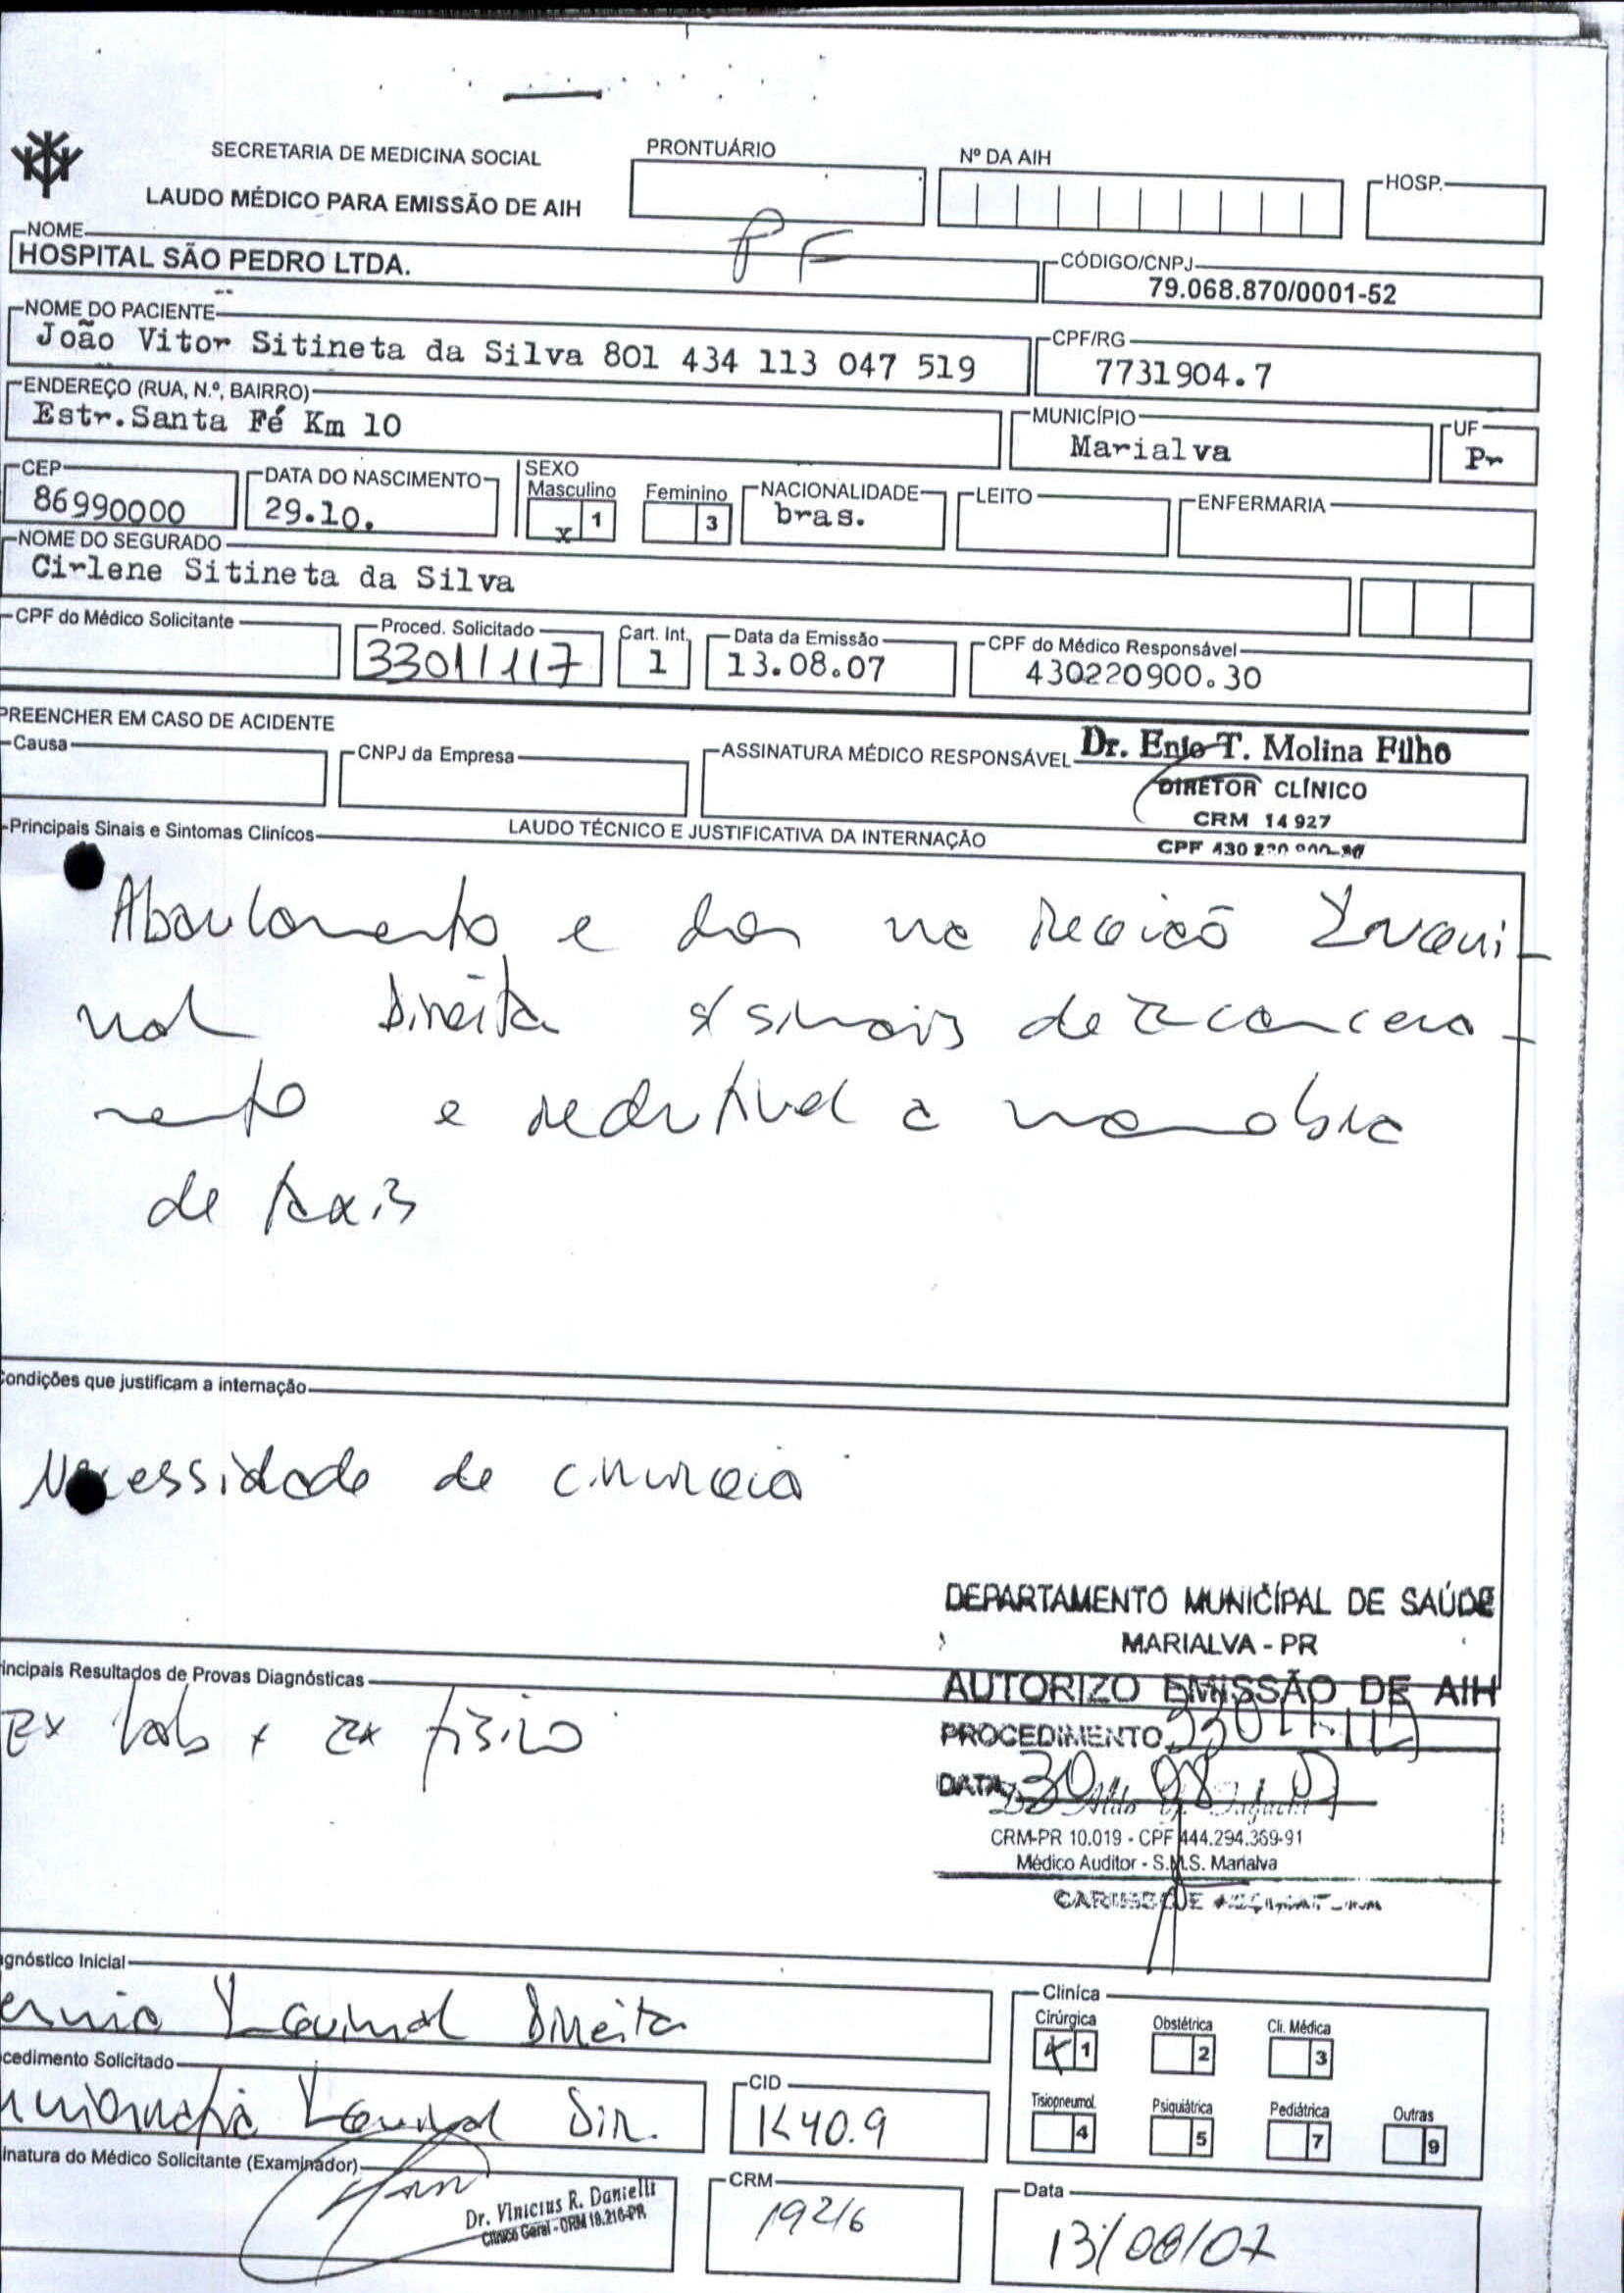 SECRETARIA DE MEDICINA SOCIAL
LAUDO MÉDICO PARA EMISSÃO DE AIH
PRONTUÁRIO
Nº DA AIH
HOSP.
PF
NOME
HOSPITAL SÃO PEDRO LTDA.
CÓDIGO/CNPJ
79.068.870/0001-52
NOME DO PACIENTE
João Vitor Sitineta da Silva 801 434 113 047 519
CPF/RG
7731904.7
ENDEREÇO (RUA, N.º, BAIRRO)
Estr.Santa Fé Km 10
MUNICÍPIO
Marialva
UF
Pr
CEP
86990000
DATA DO NASCIMENTO
29.10.
SEXO
Masculino Feminino
x 1 3
NACIONALIDADE
bras.
LEITO
ENFERMARIA
NOME DO SEGURADO
Cirlene Sitineta da Silva
CPF do Médico Solicitante
Proced. Solicitado
33011117
Cart. Int.
1
Data da Emissão
13.08.07
CPF do Médico Responsável
430220900.30
PREENCHER EM CASO DE ACIDENTE
Causa
CNPJ da Empresa
ASSINATURA MÉDICO RESPONSÁVEL
Dr. Enio T. Molina Filho
DIRETOR CLÍNICO
CRM 14 927
CPF 430 220 900-30
Principais Sinais e Sintomas Clinícos
LAUDO TÉCNICO E JUSTIFICATIVA DA INTERNAÇÃO
Abaulamento e dor na região Ingui-
nal Direita s/ sinais de encarcera-
mento e redutivel a manobra
de taxis
Condições que justificam a internação
Necessidade de cirurgia
DEPARTAMENTO MUNICÍPAL DE SAÚDE
MARIALVA - PR
AUTORIZO EMISSÃO DE AIH
incipais Resultados de Provas Diagnósticas
Ex lab + Ex fisico
PROCEDIMENTO
DATA 30 08 07
CRM-PR 10.019 - CPF 444.294.369-91
Médico Auditor - S.M.S. Marialva
CARIMBO E ASSINATURA
agnóstico Inicial
ernia Inguinal Direita
cedimento Solicitado
niorrafia Inguinal Dir.
CID
K40.9
Clínica
Cirúrgica Obstétrica Cli. Médica
x 1 2 3
Tisiopneumol. Psiquiátrica Pediátrica Outras
4 5 7 9
inatura do Médico Solicitante (Examinador)
Dr. Vinicius R. Danielli
Clínico Geral - CRM 19.216-PR
CRM
19216
Data
13/08/07